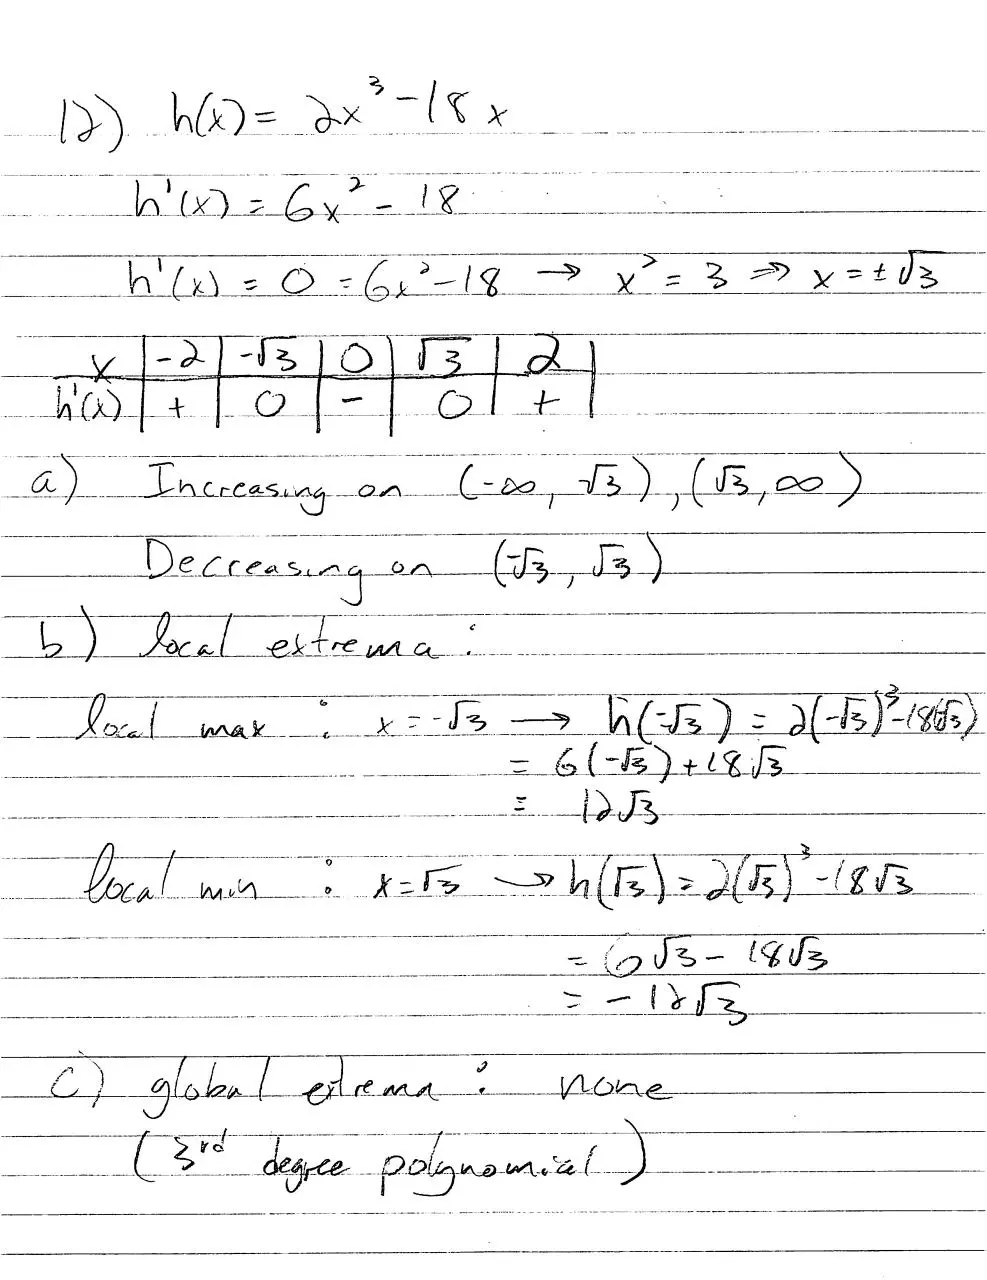 12) h(x) = 2x³ - 18x
h'(x) = 6x² - 18
h'(x) = 0 = 6x² - 18 → x² = 3 ⇒ x = ±√3
x | -2 | -√3 | 0 | √3 | 2 |
h'(x) | + | 0 | - | 0 | + |
a) Increasing on (-∞, -√3), (√3, ∞)
Decreasing on (-√3, √3)
b) local extrema:
local max : x = -√3 → h(-√3) = 2(-√3)³ - 18(-√3)
= 6(-√3) + 18√3
= 12√3
local min : x = √3 → h(√3) = 2(√3)³ - 18√3
= 6√3 - 18√3
= -12√3
c) global extrema: none
(3rd degree polynomial)